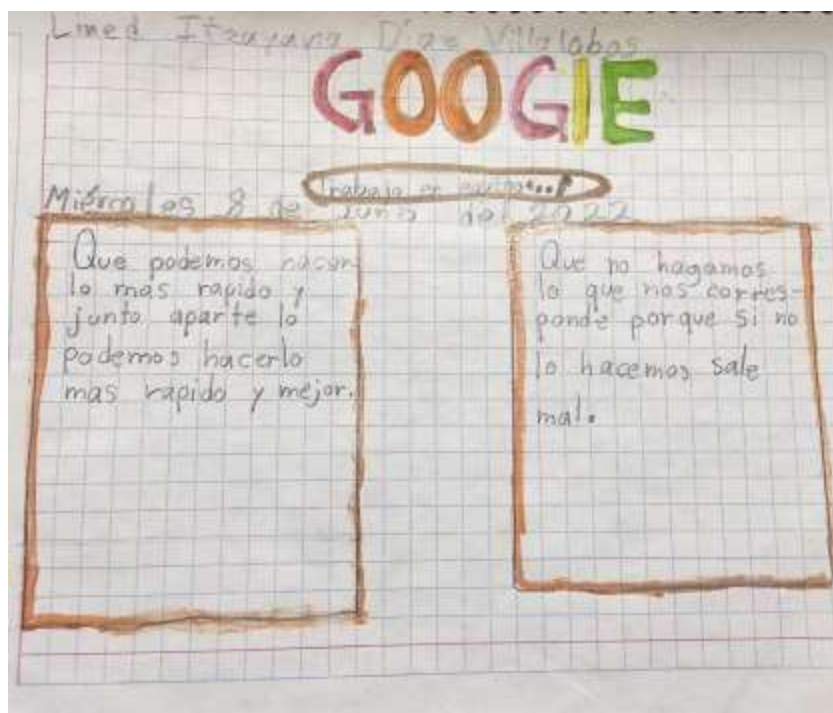 Itzayana Díaz Villalobos
GOOGlE
trabajo en equipo...
Miércoles 8 de Junio del 2022
Que podemos hacer
lo mas rapido y
junto aparte lo
podemos hacerlo
mas rapido y mejor.
Que no hagamos
lo que nos corres-
ponde porque si no
lo hacemos sale
mal.